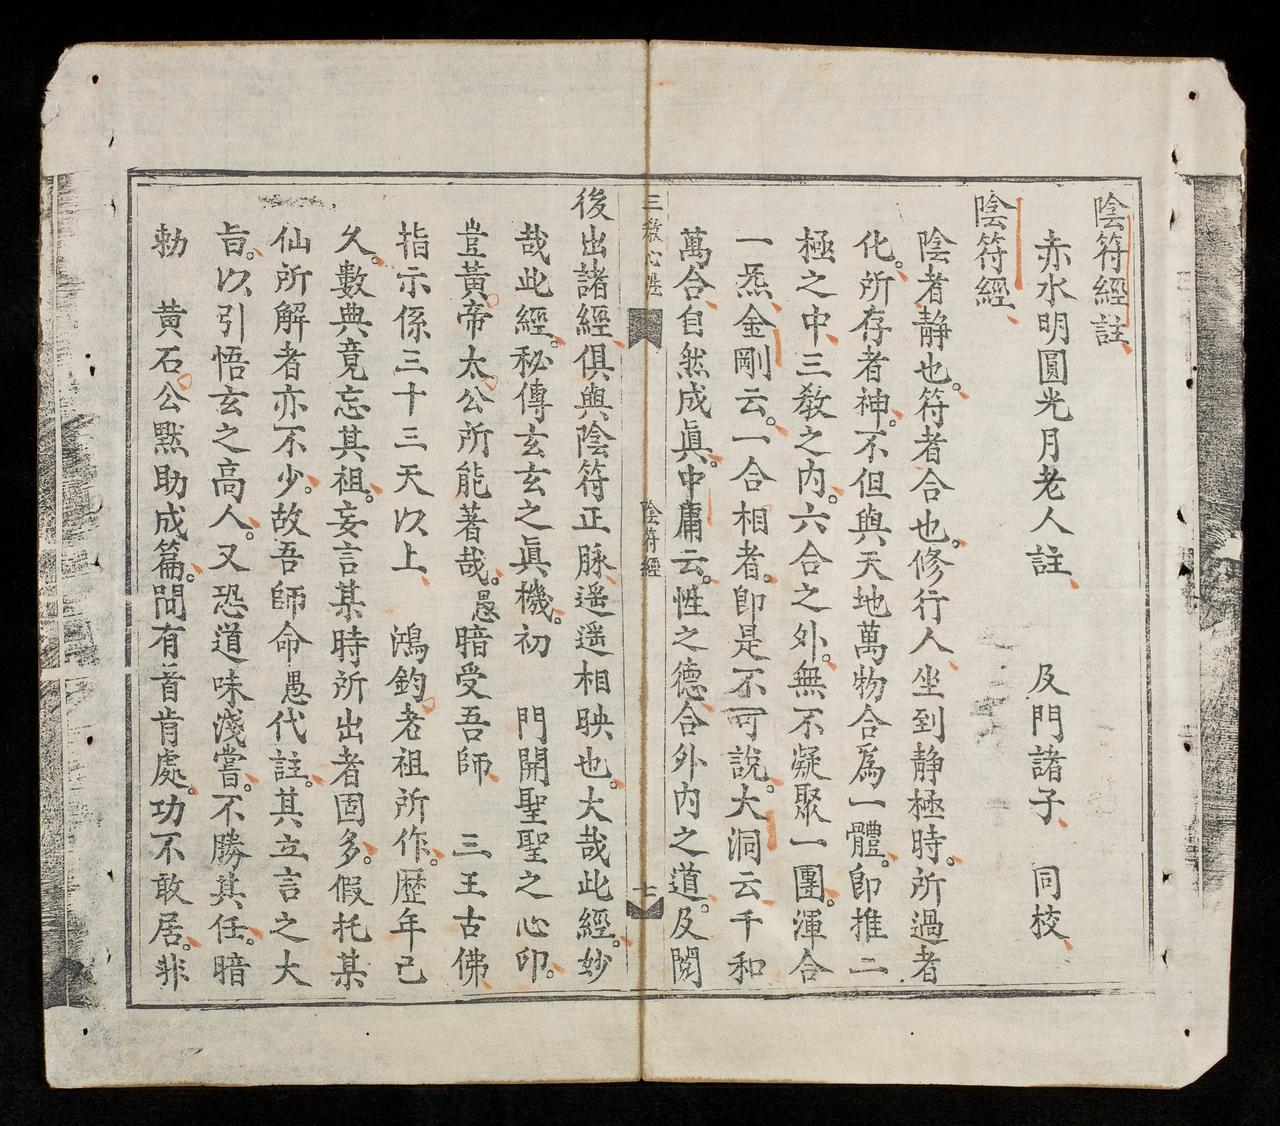 陰符經註
赤水明圓光月老人註　及門諸子　同校
陰符經
陰者静也。符者合也。修行人坐到静極時。所過者
化。所存者神。不但與天地萬物合爲一體。卽推二
極之中三教之内。六合之外。無不凝聚一團。渾合
一炁金剛云。一合相者。卽是不可說。大洞云千和
萬合自然成眞。中庸云。性之德合外内之道。及閱
三教心法　陰符經　七
後出諸經俱與陰符正脉遥遥相映也。大哉此經。妙
哉此經。秘傳玄玄之眞機。初　門開聖聖之心印。
豈黄帝太公所能著哉。愚暗受吾師　三王古佛
指示係三十三天以上　鴻鈞老祖所作。歷年已
久。數典竟忘其祖。妄言某時所出者固多。假托某
仙所解者亦不少。故吾師命愚代註。其立言之大
旨。以引悟玄之高人。又恐道味淺嘗。不勝其任。暗
勅　黄石公默助成篇。間有首肯處。功不敢居。非